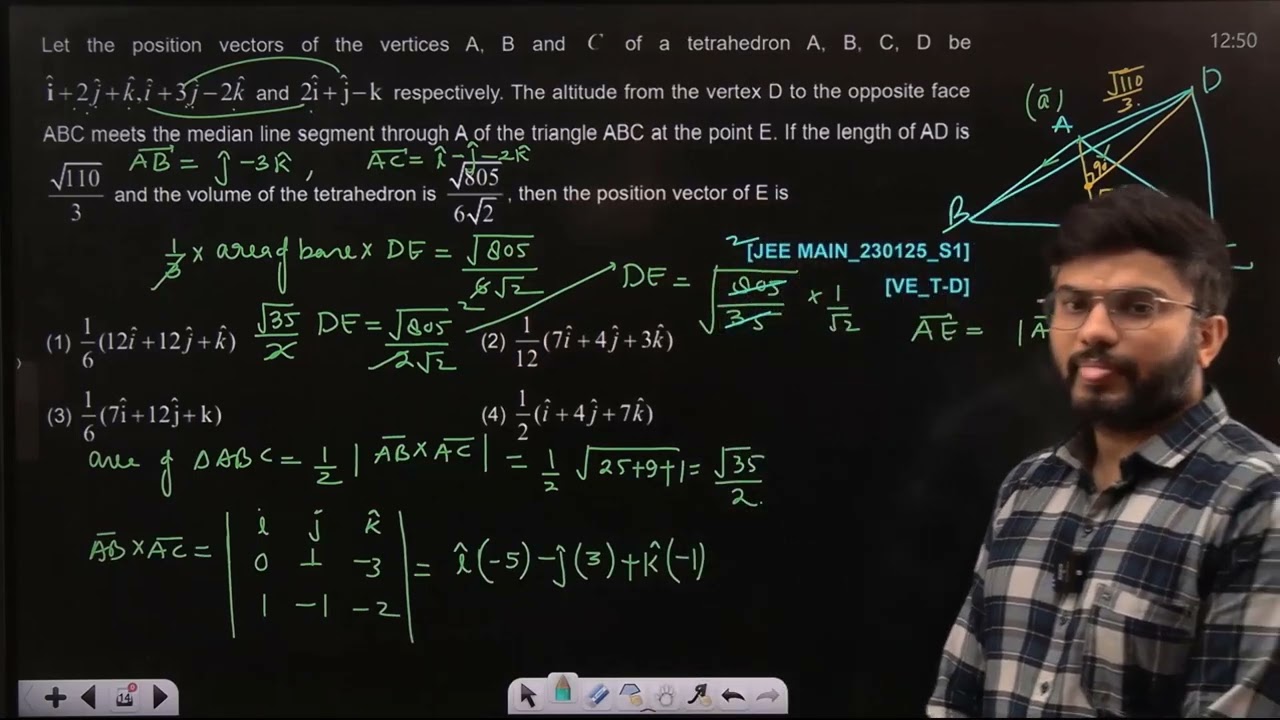 Let the position vectors of the vertices A, B and C of a tetrahedron A, B, C, D be
12:50
î+2ĵ+k̂, î+3ĵ−2k̂ and 2î+ĵ−k respectively. The altitude from the vertex D to the opposite face
ABC meets the median line segment through A of the triangle ABC at the point E. If the length of AD is
AB = ĵ −3k̂ , AC = î −ĵ −2k̂
√110/3 and the volume of the tetrahedron is √805/6√2, then the position vector of E is
(ā) A √110/3 D
90°
B
1/3 × area of base × DE = √805/6√2
[JEE MAIN_230125_S1]
[VE_T-D]
DE = √805/35 × 1/√2
√35/2 DE = √805/2√2
AE =
(1) 1/6(12î+12ĵ+k̂) (2) 1/12(7î+4ĵ+3k̂)
(3) 1/6(7î+12ĵ+k) (4) 1/2(î+4ĵ+7k̂)
area of ΔABC = 1/2 | AB × AC | = 1/2 √25+9+1 = √35/2
AB × AC = | i j k̂
0 1 −3
1 −1 −2 | = î(−5) −ĵ(3) + k̂(−1)
14